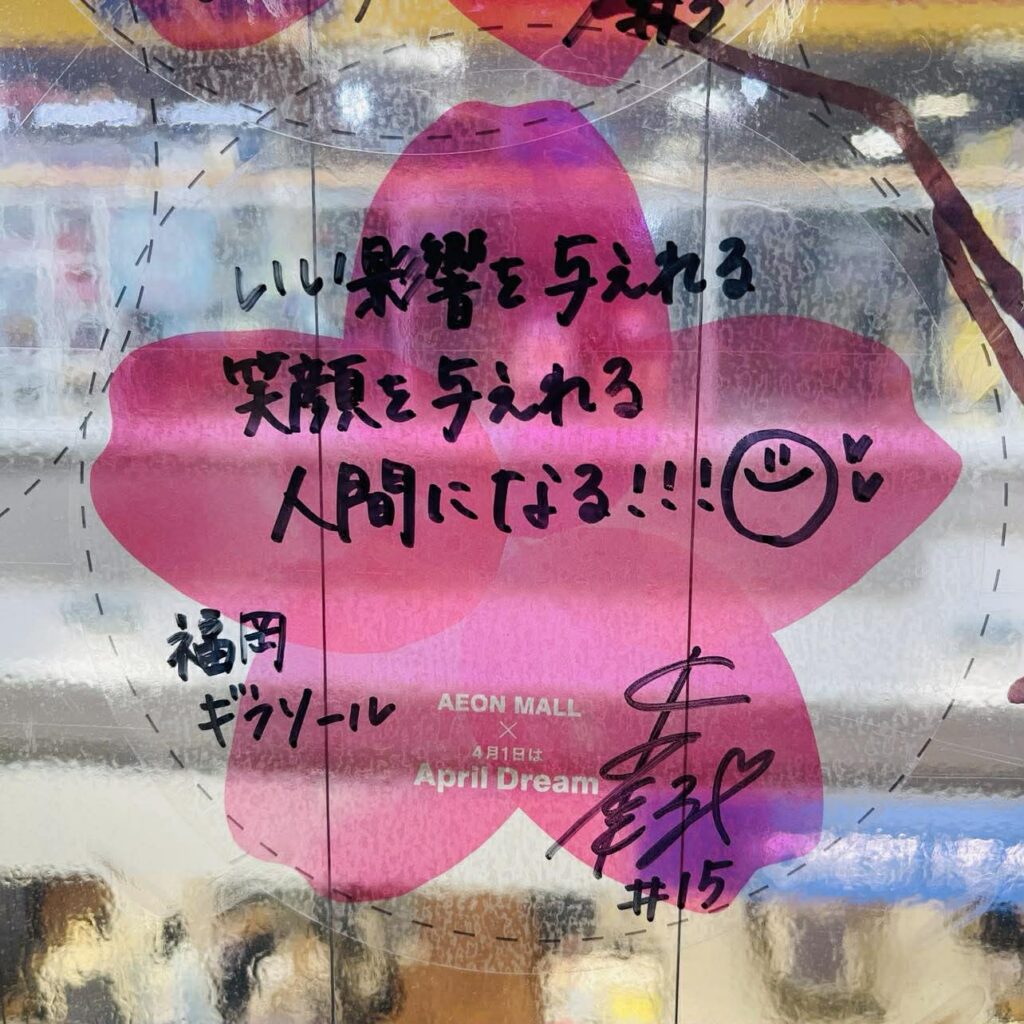 #2
いい影響を与えれる
笑顔を与えれる
人間になる!!!
福岡
ギラソール
AEON MALL
×
4月1日は
April Dream
#15